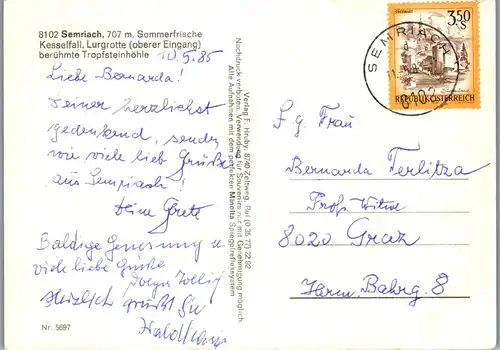 8102 Semriach, 707 m, Sommerfrische
Kesselfall, Lurgrotte (oberer Eingang)
berühmte Tropfsteinhöhle
10.5.85
Liebe Bernarda!
Deiner herzlichst
gedenkend, senden
wir viele liebe Grüße
aus Semriach!
Deine Grete
Baldige Genesung u.
viele liebe Grüße
Herzlich grüßt Sie
Nr. 5697
Verlag F. Hruby, 8740 Zeltweg, Ruf (0 35 77) 22 82
Alle Aufnahmen mit dem perfekten Minolta Spiegelreflexsystem
Nachdruck verboten. Verwendung für Souvenirs nur mit Genehmigung möglich.
3.50 S
REPUBLIK ÖSTERREICH
SEMRIACH
8102
S. g. Frau
Bernarda Terlitza
Prof. Witwe
8020 Graz
Herm. Bahrg. 8